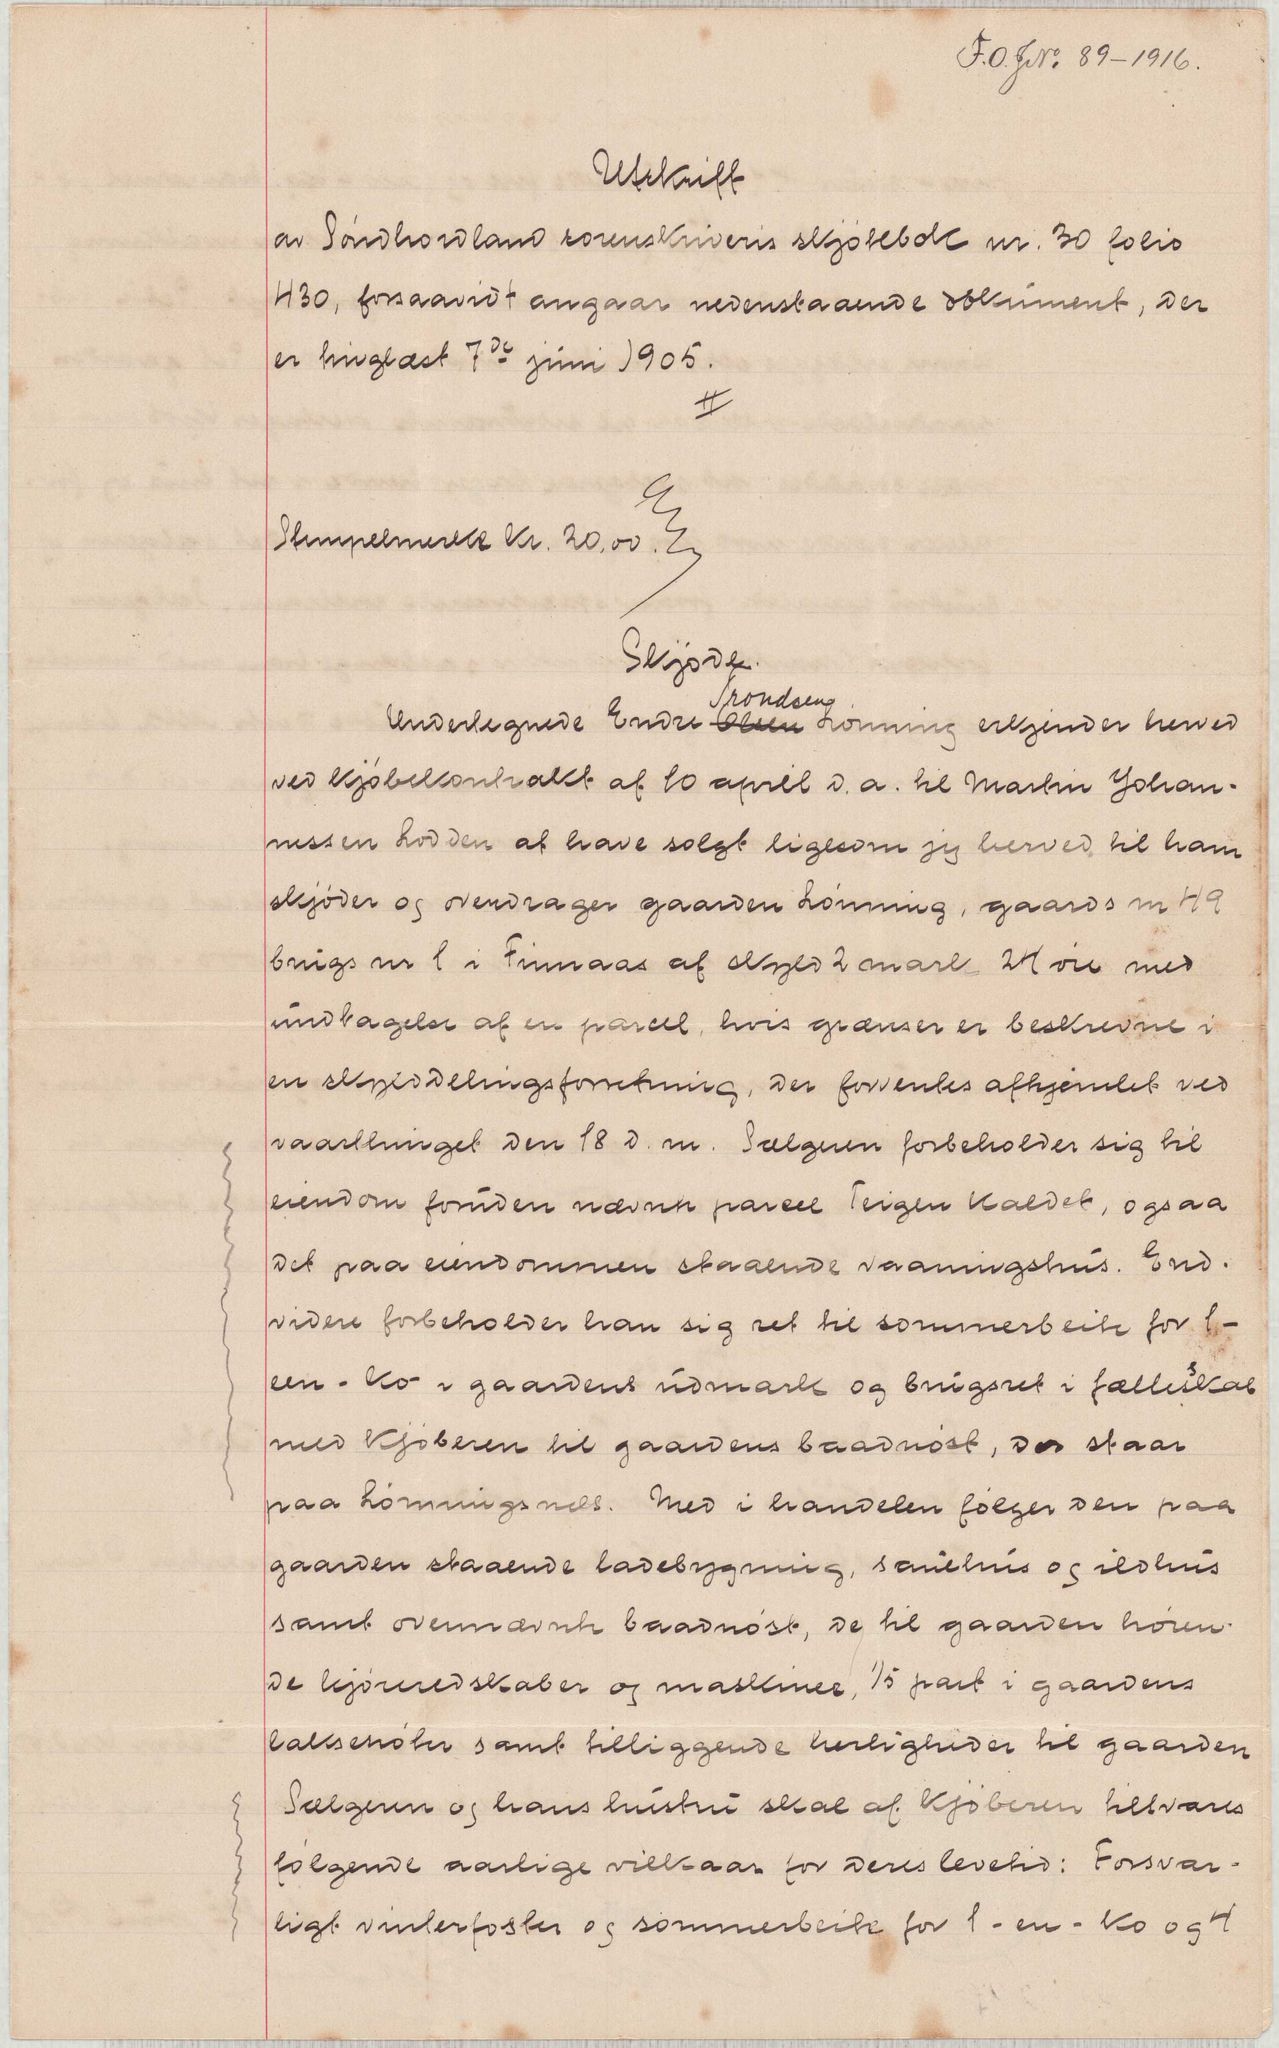 F.O.J.No. 89-1916.
Utskrift
av Söndhordland sorenskriveris skjötebok nr. 30 folio
430, forsaavidt angaar nedenstaaende dokument, der
er tinglæst 7de juni 1905.
Stempelmerke Kr. 20,00.
Skjøde.
Trondsen
Undertegnede Endre Olsen Lønning erkjender herved
ved kjøbekontrakt af 10 april d.a. til Martin Johan-
nessen Lodden at have solgt ligesom jeg herved til ham
skjøder og overdrager gaarden Lønning, gaards nr 49
brugs nr 1 i Finnaas af skyld 2 mark 24 øre med
undtagelse af en parcel, hvis grænser er beskrevne i
en skylddelingsforretning, der forventes afhjemlet ved
vaarthinget den 18 d.m. Sælgeren forbeholder sig til
eiendom foruden nævnte parcel Teigen kaldet, ogsaa
det paa eiendommen staaende vaaningshus. End-
videre forbeholder han sig ret til sommerbeite for 1-
een- ko i gaardens udmark og brugsret i fællesskab
med kjøberen til gaardens baadnøst, der staar
paa Lønningsnes. Med i handelen følger den paa
gaarden staaende ladebygning, sauehus og ildhus
samt ovennævnte baadnøst, de til gaarden høren-
de kjøreredskaber og maskiner, 1/5 part i gaardens
laksenøter samt tilliggende herligheder til gaarden
Sælgeren og hans hustru skal af kjøberen tilsvares
følgende aarlige vilkaar for deres levetid: Forsvar-
ligt vinterfoster og sommerbeite for 1 -en- ko og 4